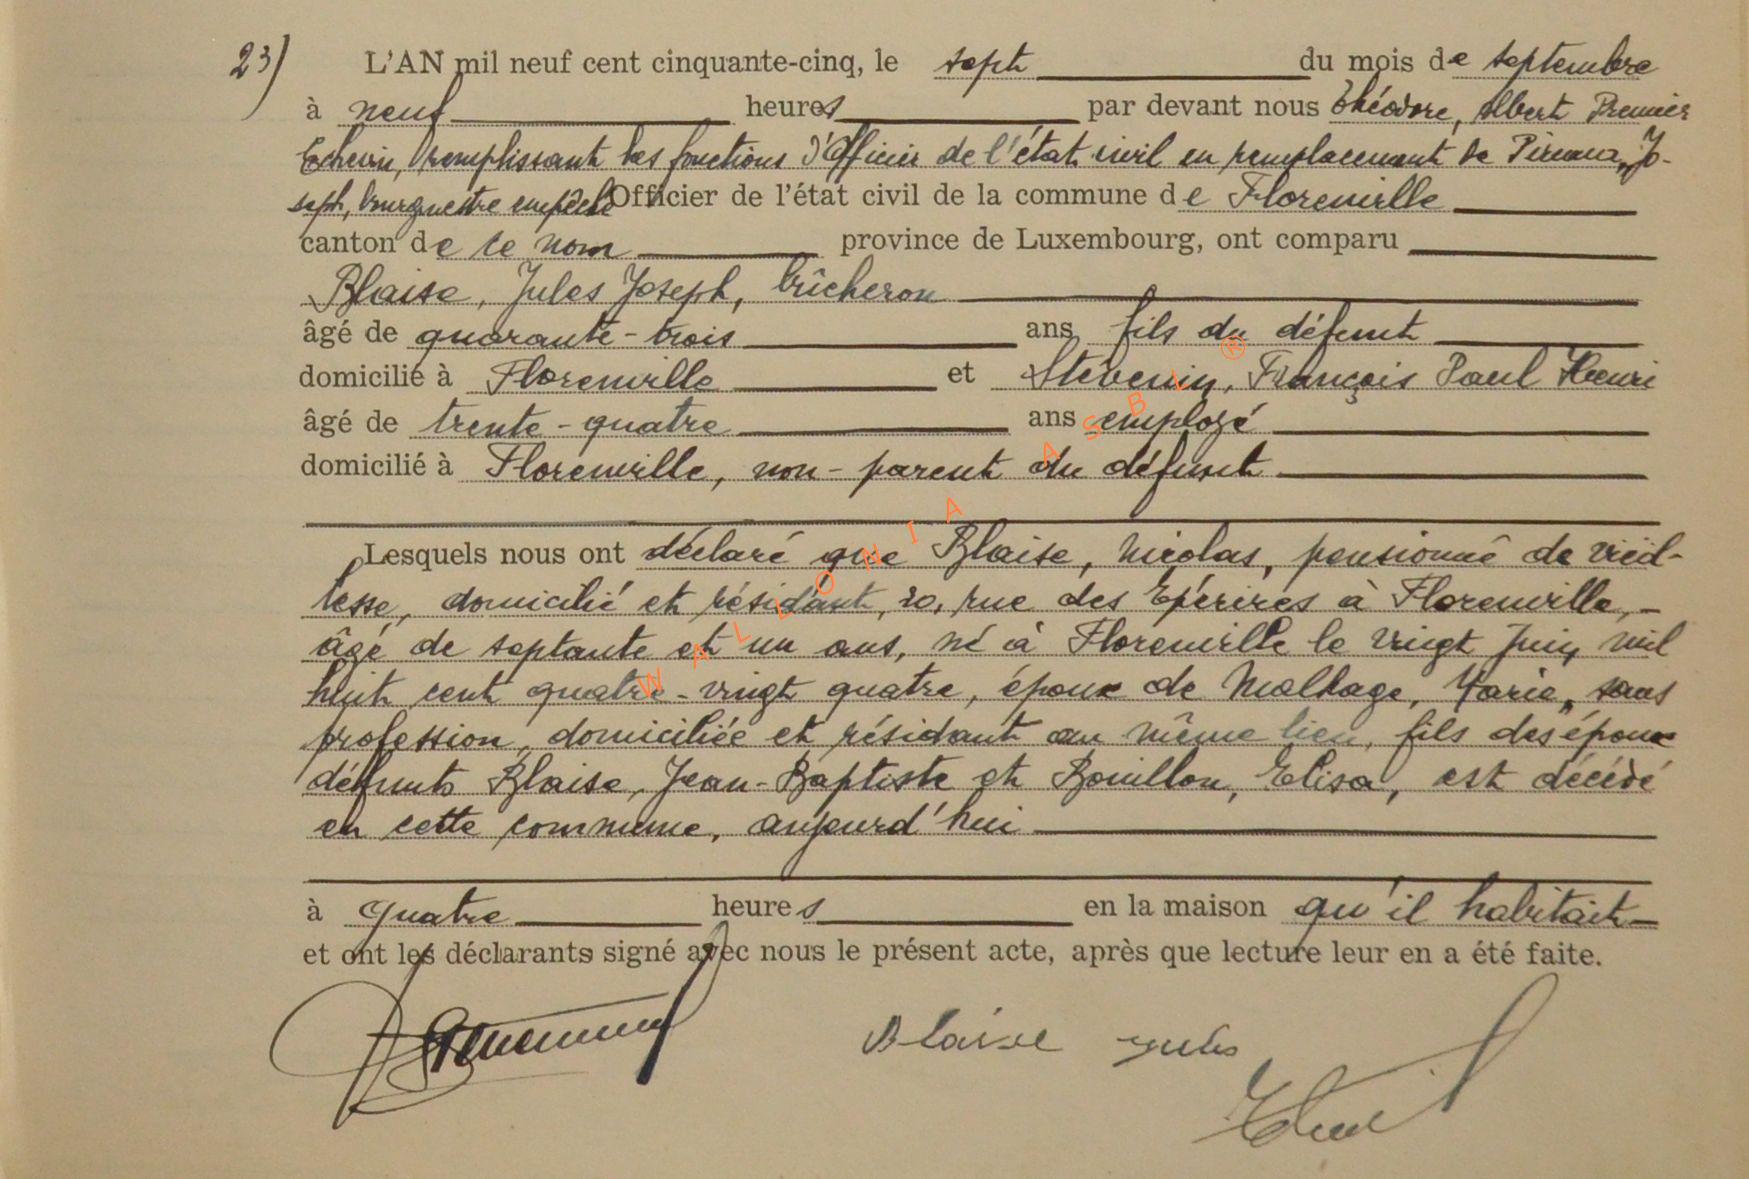 23) L'AN mil neuf cent cinquante-cinq, le sept du mois de septembre
à neuf heures par devant nous Théodore, Albert Premier
Echevin, remplissant les fonctions d'Officier de l'état civil en remplacement de Pireaux, Jo-
seph, bourgmestre empêché Officier de l'état civil de la commune de Florenville
canton de ce nom province de Luxembourg, ont comparu
Blaise, Jules Joseph, bûcheron
âgé de quarante-trois ans fils du défunt
domicilié à Florenville et Stévenin, François Paul Henri
âgé de trente-quatre ans employé
domicilié à Florenville, non-parent du défunt
Lesquels nous ont déclaré que Blaise, Nicolas, pensionné de vieil-
lesse, domicilié et résidant, 20, rue des Epérires à Florenville,-
âgé de septante et un ans, né à Florenville le vingt Juin mil
huit cent quatre-vingt quatre, époux de Maltage, Marie, sans
profession, domiciliée et résidant au même lieu, fils des époux
défunts Blaise, Jean-Baptiste et Bouillon, Elisa, est décédé
en cette commune, aujourd'hui
à quatre heures en la maison qu'il habitait
et ont les déclarants signé avec nous le présent acte, après que lecture leur en a été faite.
Blaise Jules
WALLONIA ASBL ®